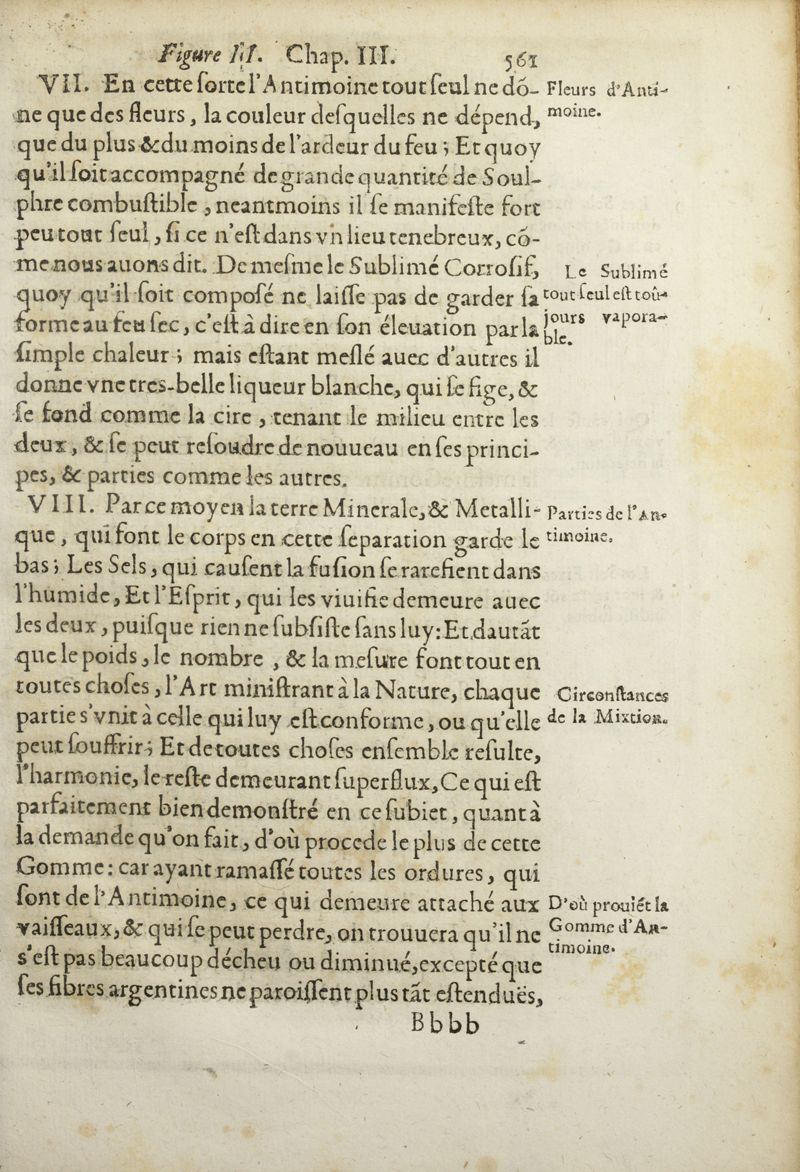 Figure III. Chap. III. 561
VII. En cette sorte l'Antimoine tout seul ne dõ-
ne que des fleurs, la couleur desquelles ne dépend,
que du plus & du moins de l'ardeur du feu ; Et quoy
qu'il soit accompagné de grande quantité de Soul-
phre combustible, neantmoins il se manifeste fort
peu tout seul, si ce n'est dans vn lieu tenebreux, cõ-
me nous auons dit. De mesme le Sublimé Corrosif,
quoy qu'il soit composé ne laisse pas de garder sa
forme au feu sec, c'est à dire en son éleuation par la
simple chaleur ; mais estant meslé auec d'autres il
donne vne tres-belle liqueur blanche, qui se fige, &
se fond comme la cire, tenant le milieu entre les
deux, & se peut resoudre de nouueau en ses princi-
pes, & parties comme les autres.
VIII. Par ce moyen la terre Minerale, & Metalli-
que, qui font le corps en cette separation garde le
bas ; Les Sels, qui causent la fusion se rarefient dans
l'humide, Et l'Esprit, qui les viuifie demeure auec
les deux, puisque rien ne subsiste sans luy : Et dautãt
que le poids, le nombre, & la mesure font tout en
toutes choses, l'Art ministrant à la Nature, chaque
partie s'vnit à celle qui luy est conforme, ou qu'elle
peut souffrir ; Et de toutes choses ensemble resulte,
l'harmonie, le reste demeurant superflux, Ce qui est
parfaitement bien demonstré en ce subiet, quant à
la demande qu'on fait, d'où procede le plus de cette
Gomme : car ayant ramassé toutes les ordures, qui
sont de l'Antimoine, ce qui demeure attaché aux
vaisseaux, & qui se peut perdre, on trouuera qu'il ne
s'est pas beaucoup décheu ou diminué, excepté que
ses fibres argentines ne paroissent plus tãt estenduës,
Bbbb
Fleurs d'Anti-
moine.
Le Sublimé
tout seul est toû-
jours vapora-
ble.
Parties de l'An-
timoine.
Circonstances
de la Mixtion.
D'où prouiẽt la
Gomme d'An-
timoine.